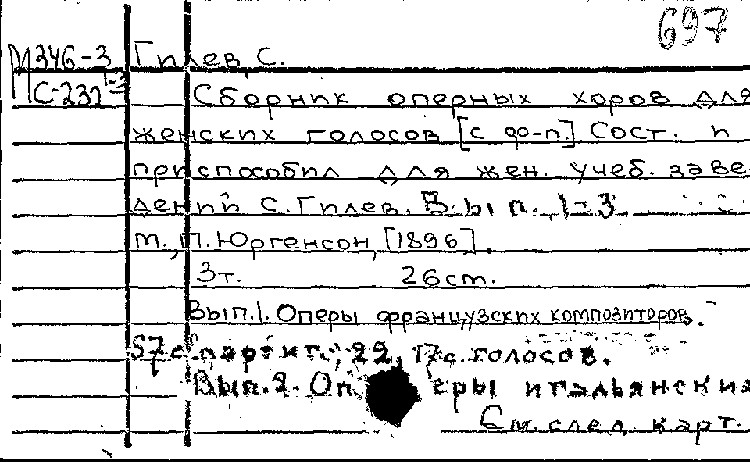 697
М346-3 Гилев, С.
С-232 1-3 Сборник оперных хоров для
женских голосов [с ф-п] Сост. и
приспособил для жен. учеб. заве
дений С. Гилев. Вып. 1-3
М., П. Юргенсон, [1896].
3т. 26 см.
Вып. 1. Оперы французских композиторов.
57с. партит.; 22, 17с. голосов.
Вып. 2. Оп еры итальянских
См. след. карт.